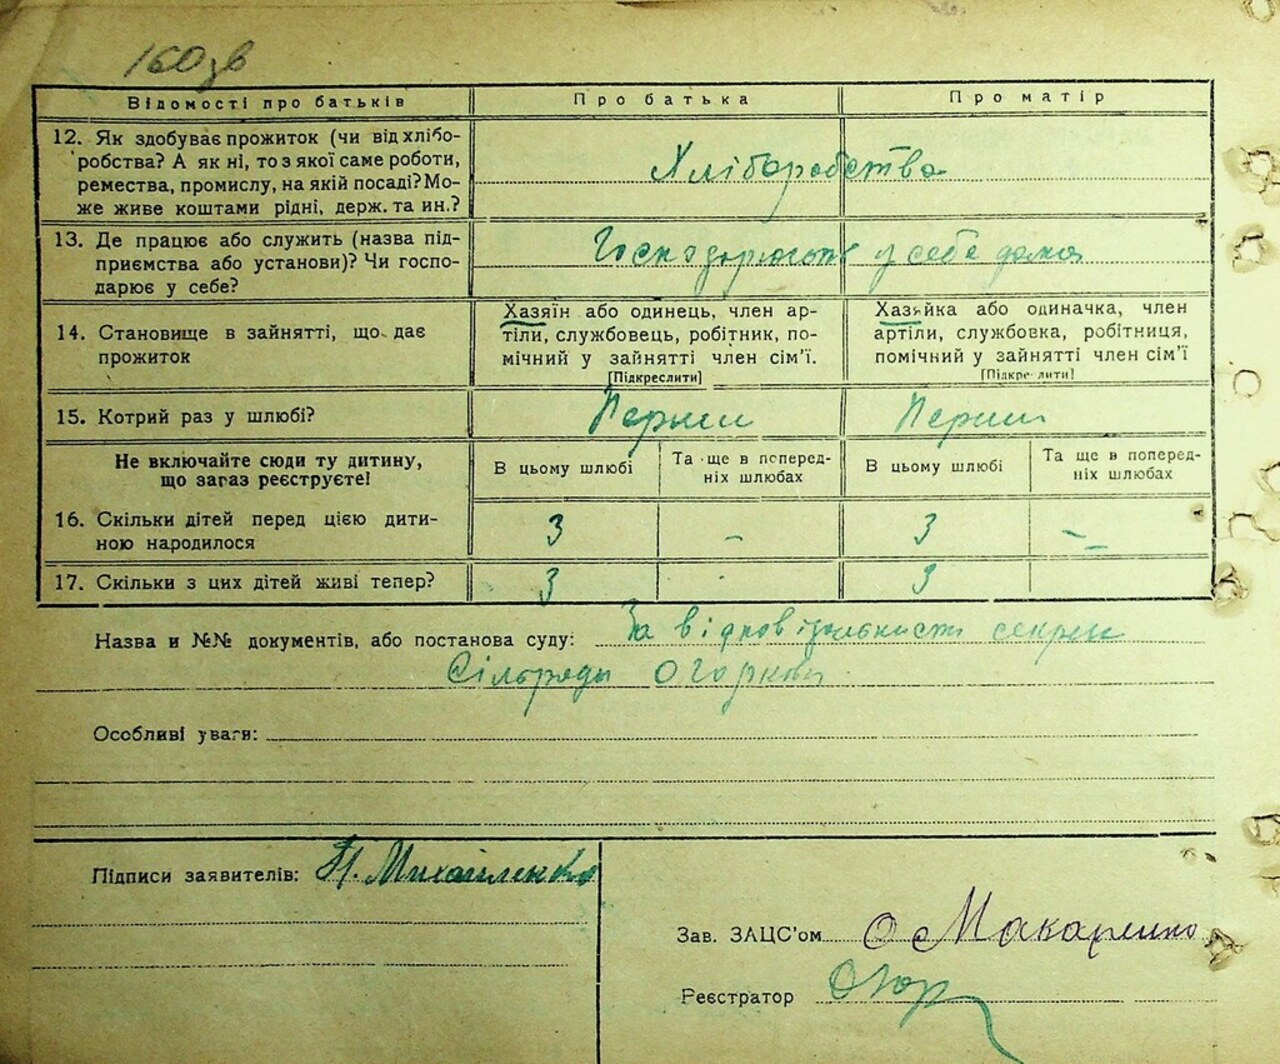 160 зв
Відомості про батьків Про батька Про матір
12. Як здобуває прожиток (чи від хлібо-
робства? А як ні, то з якої саме роботи,
ремества, промислу, на якій посаді? Мо-
же живе коштами рідні, держ. та ин.?
Хліборобства
13. Де працює або служить (назва під-
приємства або установи)? Чи госпо-
дарює у себе?
у себе дома
14. Становище в зайнятті, що дає
прожиток
Хазяїн або одинець, член ар-
тіли, службовець, робітник, по-
мічний у зайнятті член сім'ї.
[Підкреслити]
Хазяйка або одиначка, член
артіли, службовка, робітниця,
помічний у зайнятті член сім'ї
[Підкреслити]
15. Котрий раз у шлюбі? Перший Перший
Не включайте сюди ту дитину,
що загаз реєструєте!
В цьому шлюбі Та ще в поперед-
ніх шлюбах
В цьому шлюбі Та ще в поперед-
ніх шлюбах
16. Скільки дітей перед цією дити-
ною народилося
3 - 3 -
17. Скільки з цих дітей живі тепер? 3 3
Назва и №№ документів, або постанова суду: За відповідальністю секрет
Сільради Огоркови
Особливі уваги:
Підписи заявителів: Н. Михайленко
Зав. ЗАЦС'ом О Макаренко
Реєстратор Огор